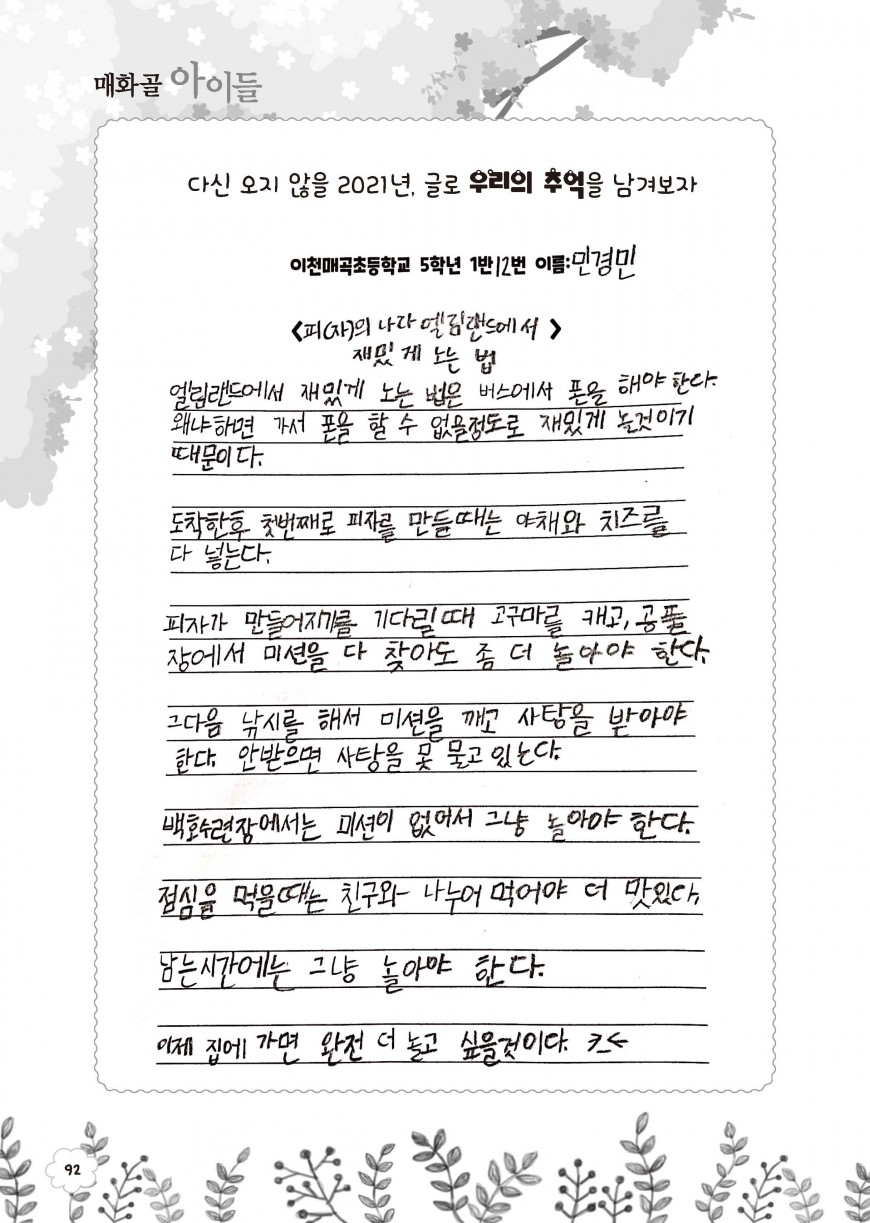 매화골 아이들
다신 오지 않을 2021년, 글로 우리의 추억을 남겨보자
이천매곡초등학교 5학년 1반 12번 이름: 민경민
<피(자)의 나라 엘림랜드에서>
재밌게 노는 법
엘림랜드에서 재밌게 노는 법은 버스에서 폰을 해야 한다.
왜냐하면 가서 폰을 할 수 없을정도로 재밌게 놀것이기
때문이다.
도착한후 첫번째로 피자를 만들때는 야채와 치즈를
다 넣는다.
피자가 만들어지기를 기다릴때 고구마를 캐고, 공풀
장에서 미션을 다 찾아도 좀 더 놀아야 한다.
그다음 낚시를 해서 미션을 깨고 사탕을 받아야
한다. 안받으면 사탕을 못 물고있는다.
백호수련장에서는 미션이 없어서 그냥 놀아야 한다.
점심을 먹을때는 친구와 나누어 먹어야 더 맛있다.
남는시간에는 그냥 놀아야 한다.
이제 집에 가면 완전 더 놀고 싶을것이다.
92